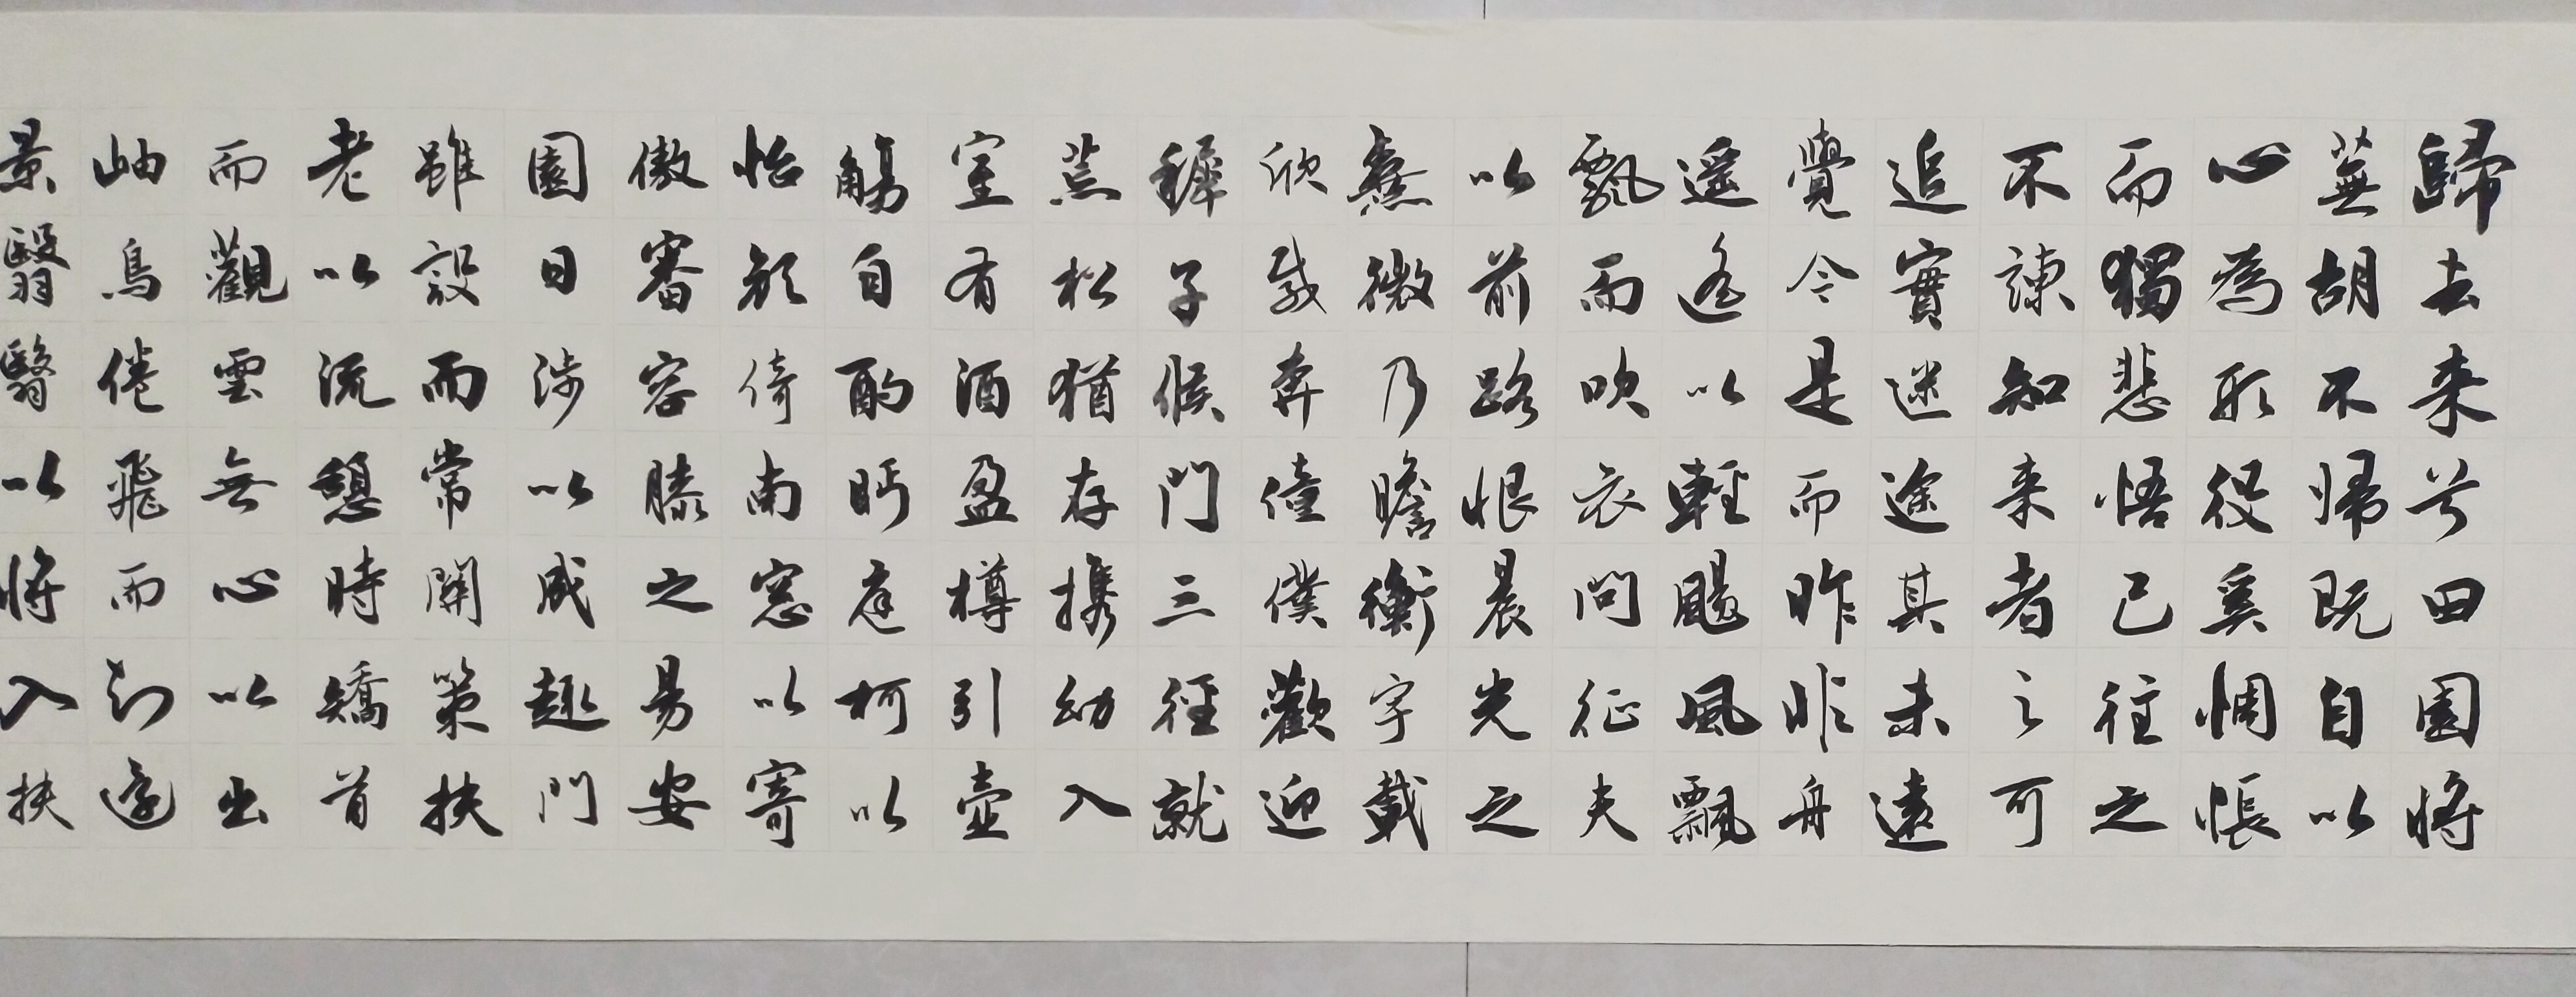 歸去来兮田園將
蕪胡不帰既自以
心為形役奚惆悵
而獨悲悟已往之
不諫知来者之可
追實迷途其未遠
覺今是而昨非舟
遥遥以輕颺風飄
飄而吹衣問征夫
以前路恨晨光之
熹微乃瞻衡宇載
欣載奔僮僕歡迎
稺子候門三徑就
荒松猶存携幼入
室有酒盈樽引壺
觴自酌眄庭柯以
怡顏倚南窓以寄
傲審容膝之易安
園日涉以成趣門
雖設而常關策扶
老以流憩時矯首
而觀雲無心以出
岫鳥倦飛而知還
景翳翳以將入扶